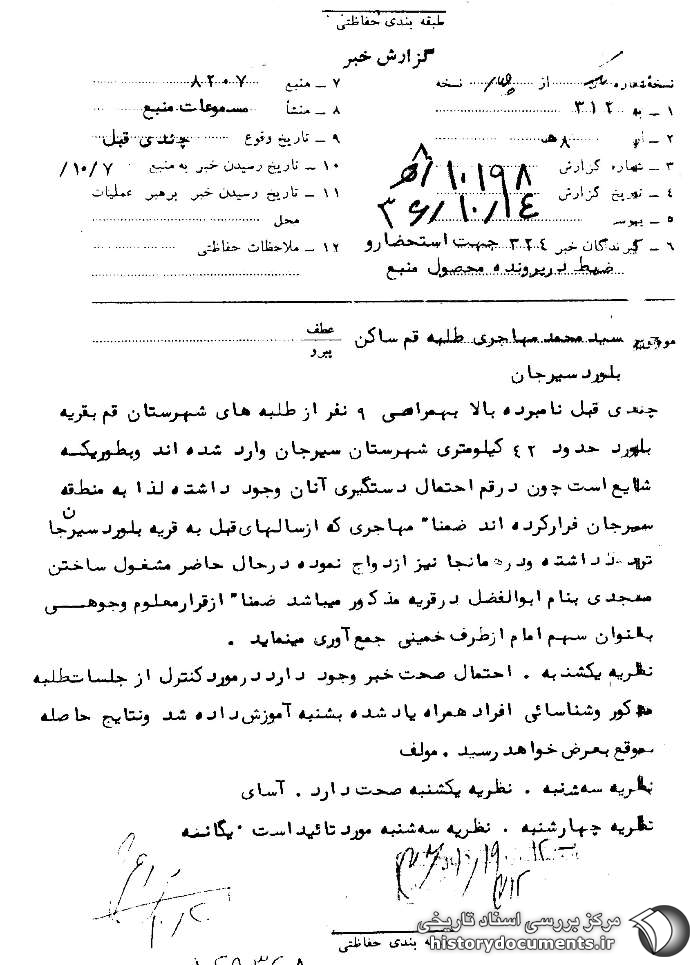 طبقه بندی حفاظتی
گزارش خبر
نسخه شماره یک از چهار نسخه
۱ ـ به ۳۱۲
۲ ـ از ۸ ه‍
۳ ـ شماره گزارش ۱۰۱۹۸/ه‍ ۸
۴ ـ تاریخ گزارش ۳۶/۱۰/۱۴
۵ ـ پیوست
۶ ـ گیرندگان خبر ۳۲٤ جهت استحضار و
ضبط در پرونده محصول منبع
۷ ـ منبع ۸۲۰۷
۸ ـ منشأ مسموعات منبع
۹ ـ تاریخ وقوع چندی قبل
۱۰ ـ تاریخ رسیدن خبر به منبع ۱۰/۷/
۱۱ ـ تاریخ رسیدن خبر برهبر عملیات
محل
۱۲ ـ ملاحظات حفاظتی
موضوع سید محمد مهاجری طلبه قم ساکن
بلورد سیرجان
عطف
پیرو
چندی قبل نامبرده بالا بهمراهی ۹ نفر از طلبه های شهرستان قم بقریه
بلورد حدود ٤۲ کیلومتری شهرستان سیرجان وارد شده اند وبطوریکه
شایع است چون درقم احتمال دستگیری آنان وجود داشته لذا به منطقه
سیرجان فرارکرده اند ضمنا" مهاجری که ازسالهای قبل به قریه بلورد سیرجان
تردد داشته ودرهمانجا نیز ازدواج نموده درحال حاضر مشغول ساختن
مسجدی بنام ابوالفضل درقریه مذکور میباشد ضمنا" ازقرارمعلوم وجوهی
بعنوان سهم امام ازطرف خمینی جمع آوری مینماید .
نظریه یکشنبه . احتمال صحت خبر وجود دارد درمورد کنترل از جلسات طلبه
مذکور وشناسائی افراد همراه یاد شده بشنبه آموزش داده شد ونتایج حاصله
بموقع بعرض خواهد رسید . مولف
نظریه سه شنبه . نظریه یکشنبه صحت دارد . آسای
نظریه چهارشنبه . نظریه سه شنبه مورد تائید است . یگانه
طبقه بندی حفاظتی
مرکز بررسی اسناد تاریخی
historydocuments.ir